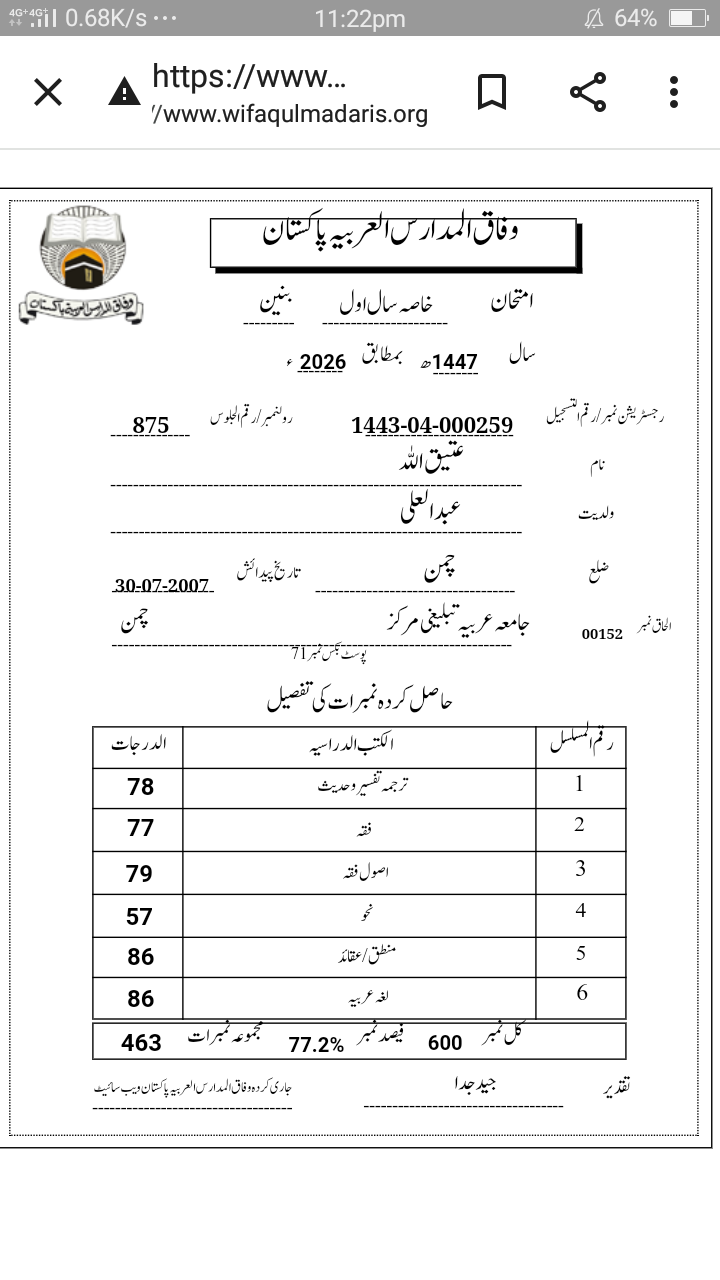 4G+ 4G+ 0.68K/s ··· 11:22pm 64%
https://www...
//www.wifaqulmadaris.org
وفاق المدارس العربیہ پاکستان
وفاق المدارس العربیہ پاکستان
امتحان خاصہ سال اول بنین
سال 1447ھ بمطابق 2026ء
رجسٹریشن نمبر/رقم التسجیل 1443-04-000259 رولنمبر/رقم الجلوس 875
نام عتیق اللہ
ولدیت عبدالعلی
ضلع چمن تاریخ پیدائش 30-07-2007
الحاق نمبر 00152 جامعہ عربیہ تبلیغی مرکز چمن
پوسٹ بکس نمبر 71
حاصل کردہ نمبرات کی تفصیل
رقم المسلسل الکتب الدراسیہ الدرجات
1 ترجمہ تفسیر و حدیث 78
2 فقہ 77
3 اصول فقہ 79
4 نحو 57
5 منطق/عقائد 86
6 لغہ عربیہ 86
کل نمبر 600 فیصد نمبر 77.2% مجموعہ نمبرات 463
تقدیر جید جدا جاری کردہ وفاق المدارس العربیہ پاکستان ویب سائیٹ